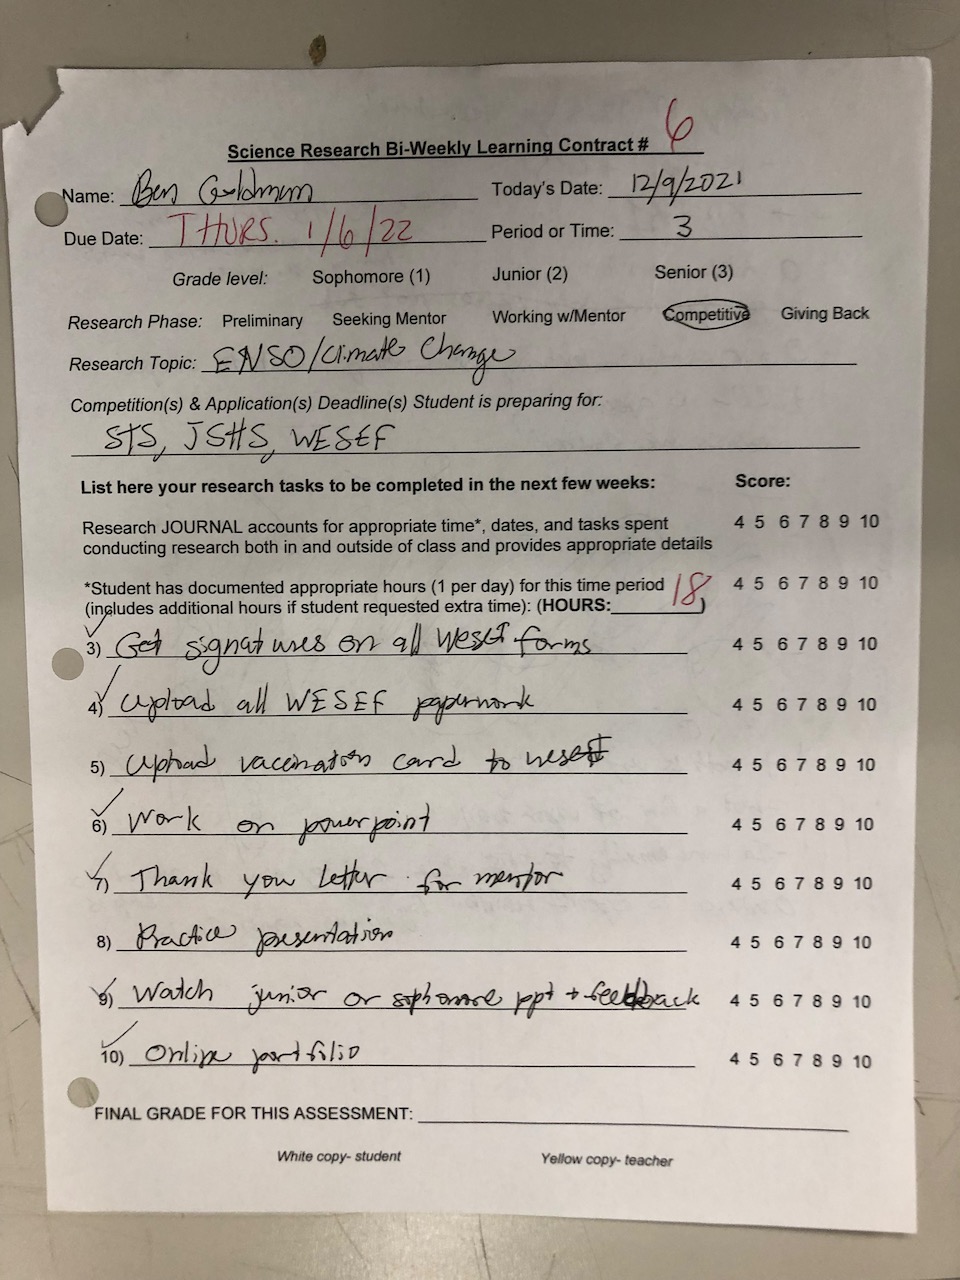 Science Research Bi-Weekly Learning Contract # 6
Name: Ben Goldman Today's Date: 12/9/2021
Due Date: THURS. 1/6/22 Period or Time: 3
Grade level: Sophomore (1) Junior (2) Senior (3)
Research Phase: Preliminary Seeking Mentor Working w/Mentor Competitive Giving Back
Research Topic: ENSO/Climate Change
Competition(s) & Application(s) Deadline(s) Student is preparing for:
STS, JSHS, WESEF
List here your research tasks to be completed in the next few weeks: Score:
Research JOURNAL accounts for appropriate time*, dates, and tasks spent 4 5 6 7 8 9 10
conducting research both in and outside of class and provides appropriate details
*Student has documented appropriate hours (1 per day) for this time period 4 5 6 7 8 9 10
(includes additional hours if student requested extra time): (HOURS: 18)
3) Get signatures on all Wesef forms 4 5 6 7 8 9 10
4) Upload all WESEF paperwork 4 5 6 7 8 9 10
5) Upload vaccination card to wesef 4 5 6 7 8 9 10
6) Work on powerpoint 4 5 6 7 8 9 10
7) Thank you letter for mentor 4 5 6 7 8 9 10
8) Practice presentation 4 5 6 7 8 9 10
9) Watch junior or sophomore ppt + feedback 4 5 6 7 8 9 10
10) Online portfolio 4 5 6 7 8 9 10
FINAL GRADE FOR THIS ASSESSMENT:
White copy- student Yellow copy- teacher